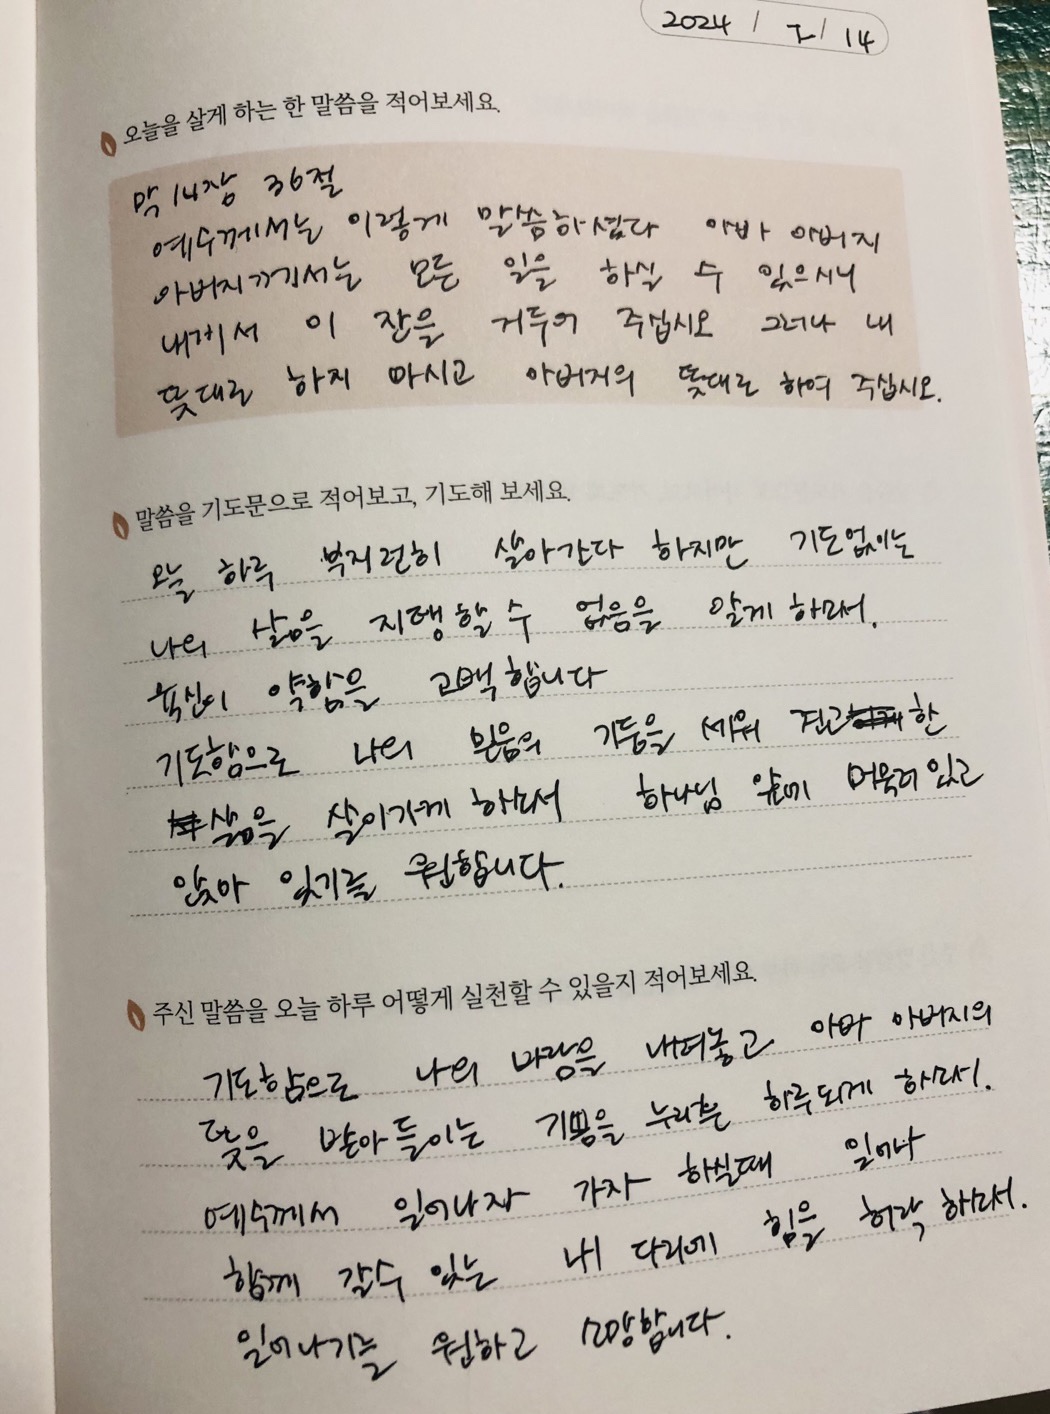 2024 / 3 / 14
오늘을 살게 하는 한 말씀을 적어보세요.
막 14장 36절
예수께서는 이렇게 말씀하셨다 아바 아버지
아버지께서는 모든 일을 하실 수 있으시니
내게서 이 잔을 거두어 주십시오 그러나 내
뜻대로 하지 마시고 아버지의 뜻대로 하여 주십시오.
말씀을 기도문으로 적어보고, 기도해 보세요.
오늘 하루 부지런히 살아간다 하지만 기도없이는
나의 삶을 지탱할 수 없음을 알게 하소서.
육신이 약함을 고백합니다
기도함으로 나의 믿음의 기둥을 세워 견고한
삶을 살아가게 하소서 하나님 앞에 머물러 있고
앉아 있기를 원합니다.
주신 말씀을 오늘 하루 어떻게 실천할 수 있을지 적어보세요.
기도함으로 나의 바람을 내려놓고 아바 아버지의
뜻을 받아들이는 기쁨을 누리는 하루되게 하소서.
예수께서 일어나자 가자 하실때 일어나
함께 갈수 있는 내 다리에 힘을 허락하소서.
일어나기를 원하고 소망합니다.